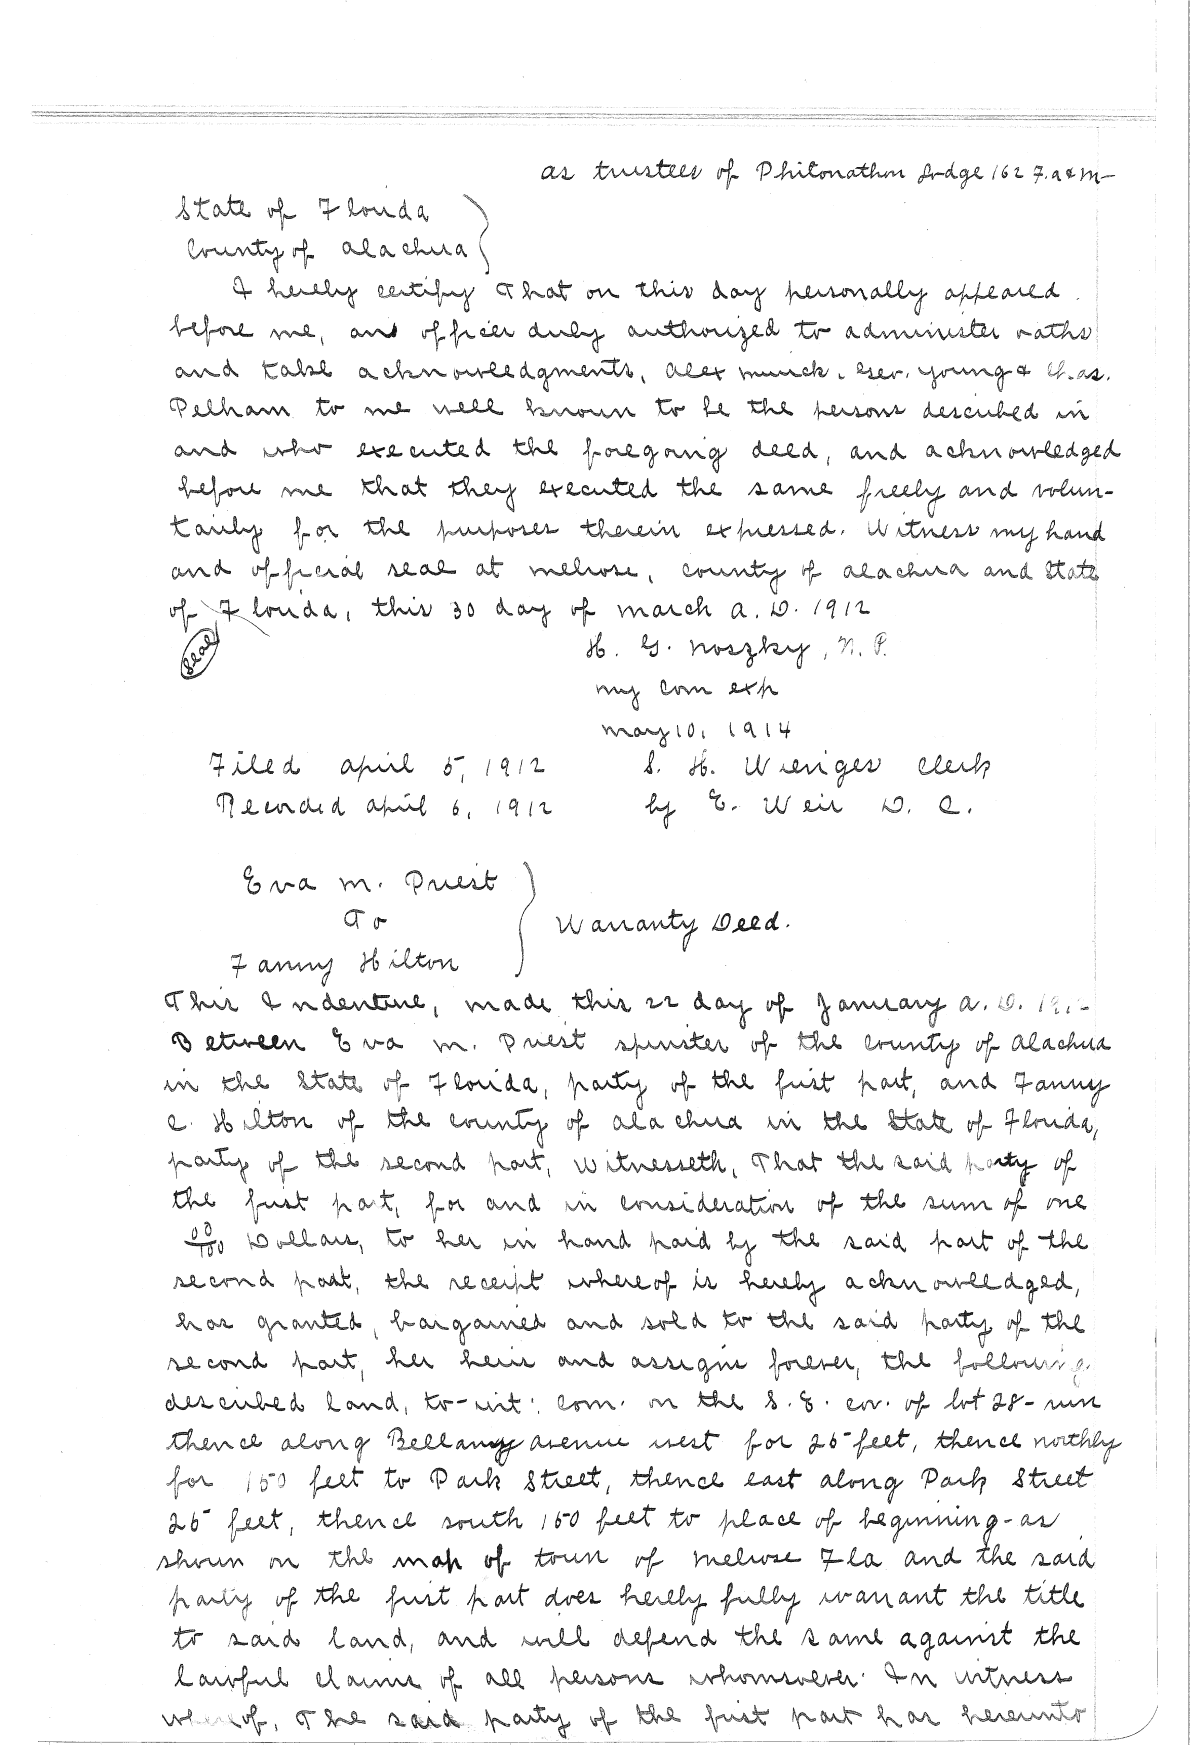 as trustees of Philonathon Lodge 162 F. a & m-
State of Florida
County of Alachua
I hereby certify That on this day personally appeared
before me, and officer duly authorized to administer oaths
and take acknowledgments, Alex Munck. Geo. Young & Chas.
Pelham to me well known to be the persons described in
and who executed the foregoing deed, and acknowledged
before me that they executed the same freely and volun-
tarily for the purposes therein expressed. Witness my hand
and official seal at Melrose, County of Alachua and State
of Florida, this 30 day of march A. D. 1912
Seal
H. G. Noszky, N. P.
my com exp
may 10, 1914
Filed april 5, 1912 S. H. Wienges Clerk
Recorded april 6, 1912 by E. Weir D. C.
Eva M. Priest
To
Warranty Deed.
Fanny Hilton
This Indenture, made this 22 day of January A. D.
Between Eva M. Priest spinster of the county of Alachua
in the State of Florida, party of the first part, and Fanny
C. Hilton of the county of Alachua in the State of Florida,
party of the second part, witnesseth, That the said party of
the first part, for and in consideration of the sum of one
00/100 Dollars, to her in hand paid by the said part of the
second part, the receipt whereof is hereby acknowledged,
has granted, bargained and sold to the said party of the
second part, her heirs and assigns forever, the following
described land, to-wit: Com. on the S. E. cor. of lot 28 - run
thence along Bellamy avenue west for 25 feet, thence northly
for 150 feet to Park Street, thence east along Park Street
25 feet, thence south 150 feet to place of beginning - as
shown on the map of town of Melrose Fla and the said
party of the first part does hereby fully warrant the title
to said land, and will defend the same against the
lawful claims of all persons whomsoever. In witness
whereof, The said party of the first part has hereunto